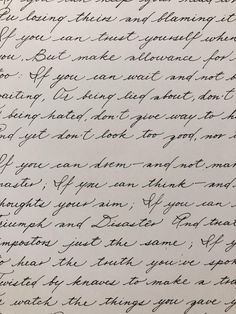 losing theirs and blaming it
If you can trust yourself when
you, But make allowance for
too: If you can wait and not b
waiting, Or being lied about, don't
being hated, don't give way to h
nd yet don't look too good, nor
f you can dream—and not mak
aster; If you can think—and
houghts your aim; If you can
riumph and Disaster And trea
mpostors just the same; If yo
o hear the truth you've spok
wisted by knaves to make a tra
watch the things you gave y